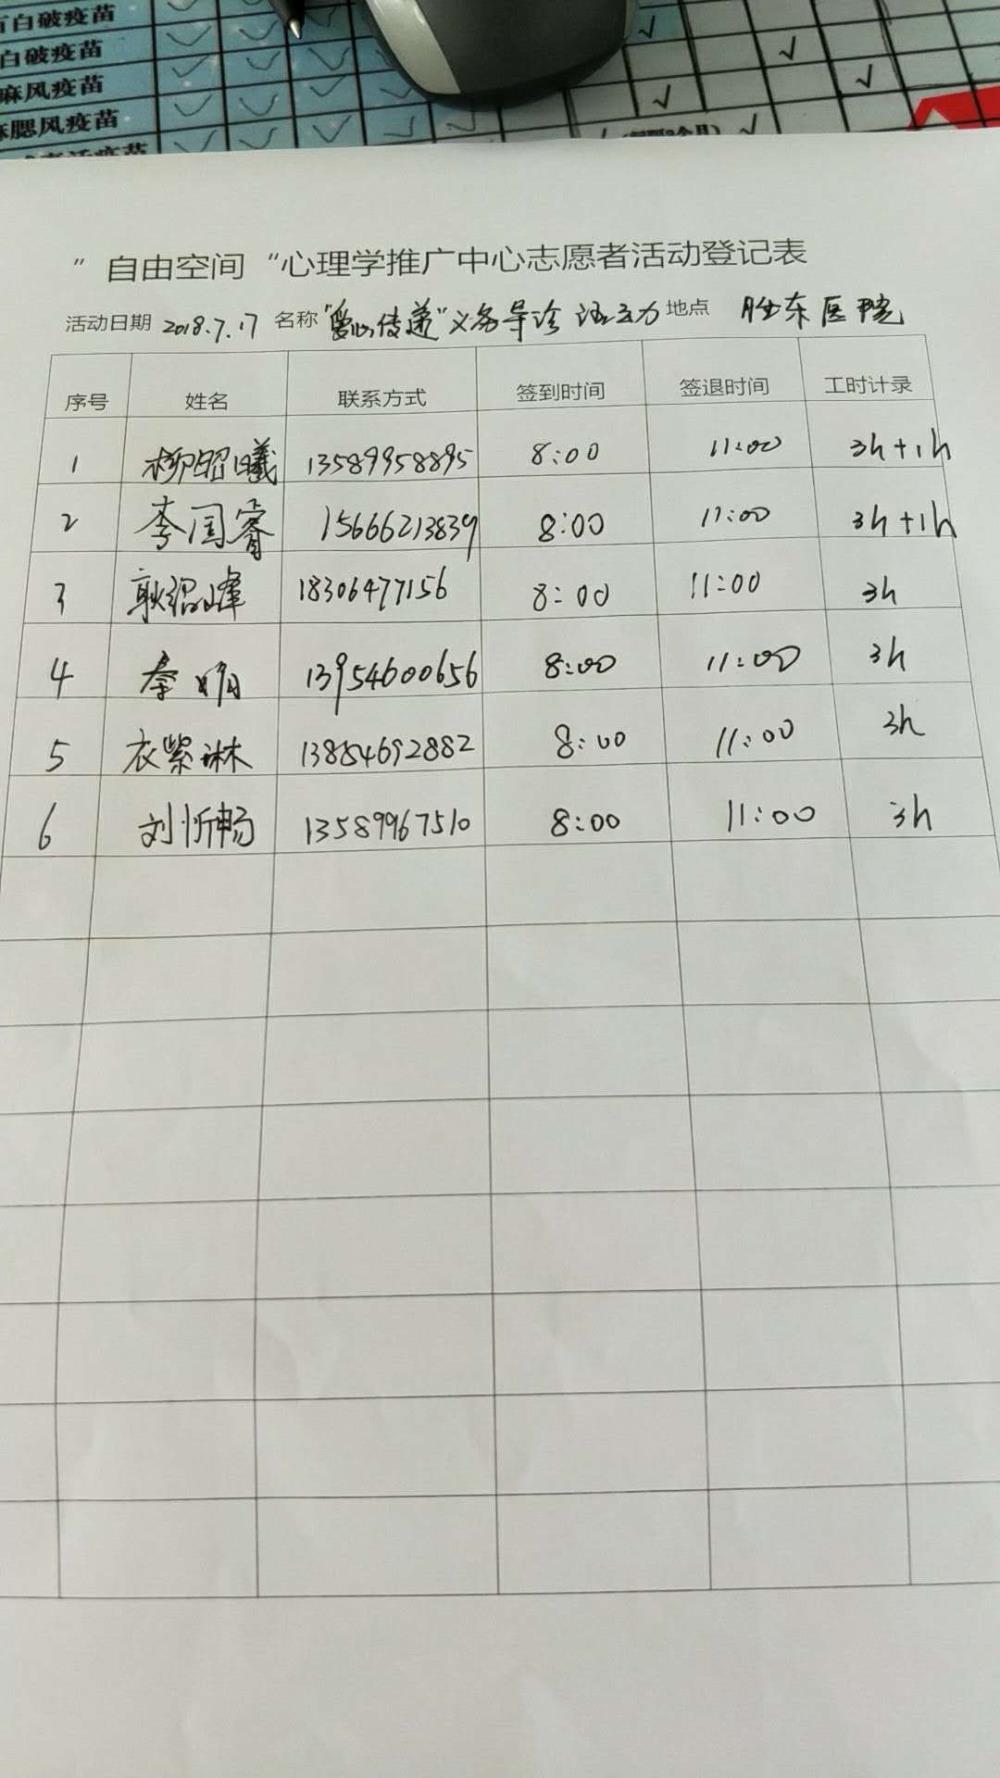 百白破疫苗
白破疫苗
麻风疫苗
麻腮风疫苗
" 自由空间 "心理学推广中心志愿者活动登记表
活动日期 2018.7.17 名称 "爱心传递"义务导诊活动 地点 胜东医院
序号 姓名 联系方式 签到时间 签退时间 工时计录
1 柳昭曦 13589958895 8:00 11:00 3h+1h
2 李国睿 15666213839 8:00 11:00 3h+1h
3 耿绍峰 18306477156 8:00 11:00 3h
4 秦明 13954600656 8:00 11:00 3h
5 衣紫琳 13854692882 8:00 11:00 3h
6 刘忻畅 13589967510 8:00 11:00 3h